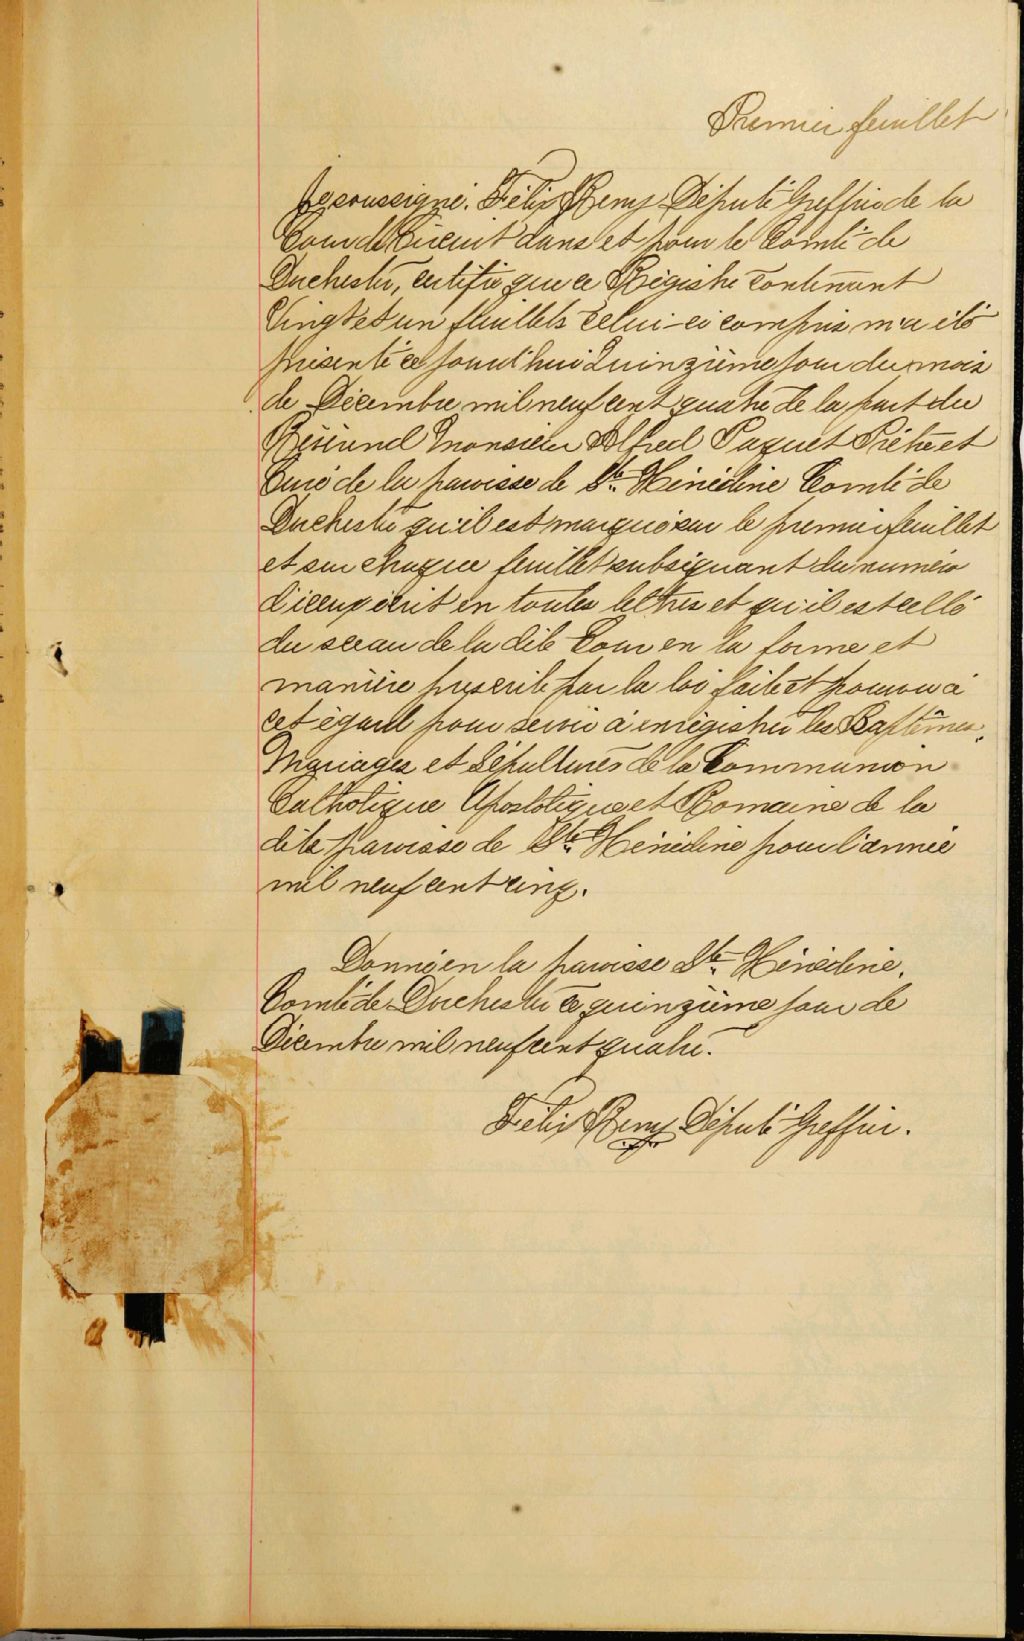 Premier feuillet
Je soussigné, Félix Remy Député Greffier de la
Cour de Circuit dans et pour le Comté de
Dorchester, certifie que ce Régistre contenant
Vingt et un feuillets celui-ci compris m'a été
présenté ce jourd'hui Quinzième jour du mois
de Décembre mil neuf cent quatre de la part du
Révérend Monsieur Alfred Paquet Prêtre et
Curé de la paroisse de Ste Hénédine Comté de
Dorchester qu'il est marqué sur le premier feuillet
et sur chaque feuillet subséquant du numéro
d'iceux écrit en toutes lettres et qu'il est cellé
du sceau de la dite Cour en la forme et
manière prescrite par la loi faite et pourvu à
cet égard pour servir à enrégistrer les Baptêmes,
Mariages et Sépultures de la Communion
Catholique Apostolique et Romaine de la
dite paroisse de Ste Hénédine pour l'année
mil neuf cent cinq.
Donné en la paroisse Ste Hénédine,
Comté de Dorchester ce quinzième jour de
Décembre mil neuf cent quatre.
Félix Remy Député Greffier.